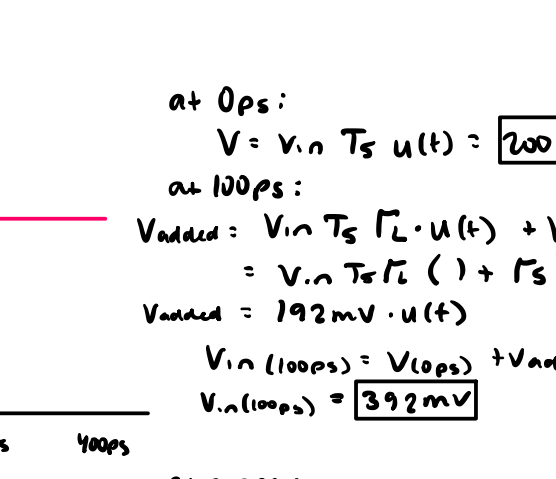 at 0ps:
V = Vin Ts u(t) = 200
at 100ps:
Vadded = Vin Ts ΓL · u(t) +
= Vin Ts ΓL ( ) + Γs
Vadded = 192mV · u(t)
Vin (100ps) = V(0ps) + Vad
Vin(100ps) = 392mV
s 400ps